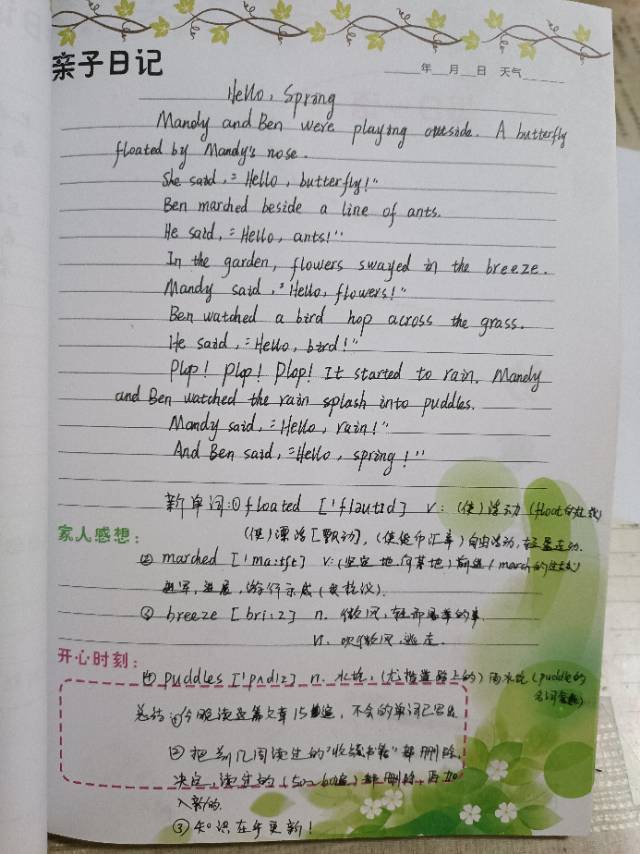 亲子日记
年 月 日 天气
Hello, Spring
Mandy and Ben were playing outside. A butterfly
floated by Mandy's nose.
She said, "Hello, butterfly!"
Ben marched beside a line of ants.
He said, "Hello, ants!"
In the garden, flowers swayed in the breeze.
Mandy said, "Hello, flowers!"
Ben watched a bird hop across the grass.
He said, "Hello, bird!"
Plop! Plop! Plop! It started to rain. Mandy
and Ben watched the rain splash into puddles.
Mandy said, "Hello, rain!"
And Ben said, "Hello, spring!"
新单词:① floated ['fləutɪd] v: (使)浮动 (float的过去式)
家人感想:
(使)漂浮[飘动], (使货币汇率)自由浮动, 轻盈走动.
② marched ['ma:tʃt] v: (坚定地向某地)前进 (march的过去式)
进军, 进展, 游行示威(或抗议).
③ breeze [bri:z] n. 微风, 轻而易举的事.
v. 吹微风, 逃走.
开心时刻:
④ puddles ['pʌdlz] n. 水坑, (尤指道路上的)雨水坑 (puddle的
名词复数)
总结 ① 今晚读这篇文章15遍, 不会的单词已写出
② 把前几周读过的"收藏书籍"都删除,
决定, 读过的(50~60遍)都删除, 再加
入新的.
③ 知识在于更新!